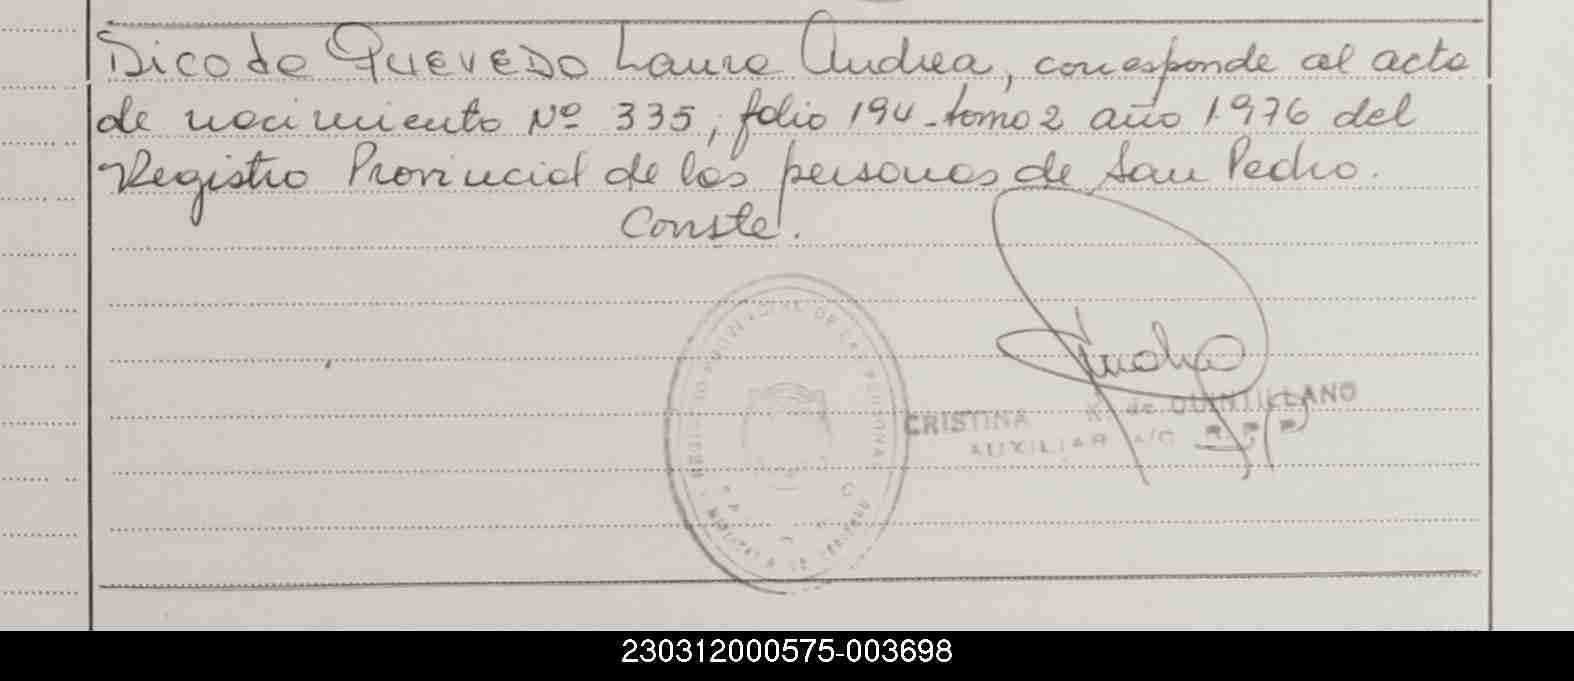 Dico de QUEVEDO Laura Andrea, corresponde al acta
de nacimiento Nº 335, folio 194 - tomo 2 año 1976 del
Registro Provincial de las personas de San Pedro.
Conste.
REGISTRO PROVINCIAL DE LAS PERSONAS
CRISTINA R. de QUINTILLANO
AUXILIAR A/C R.P.P
230312000575-003698